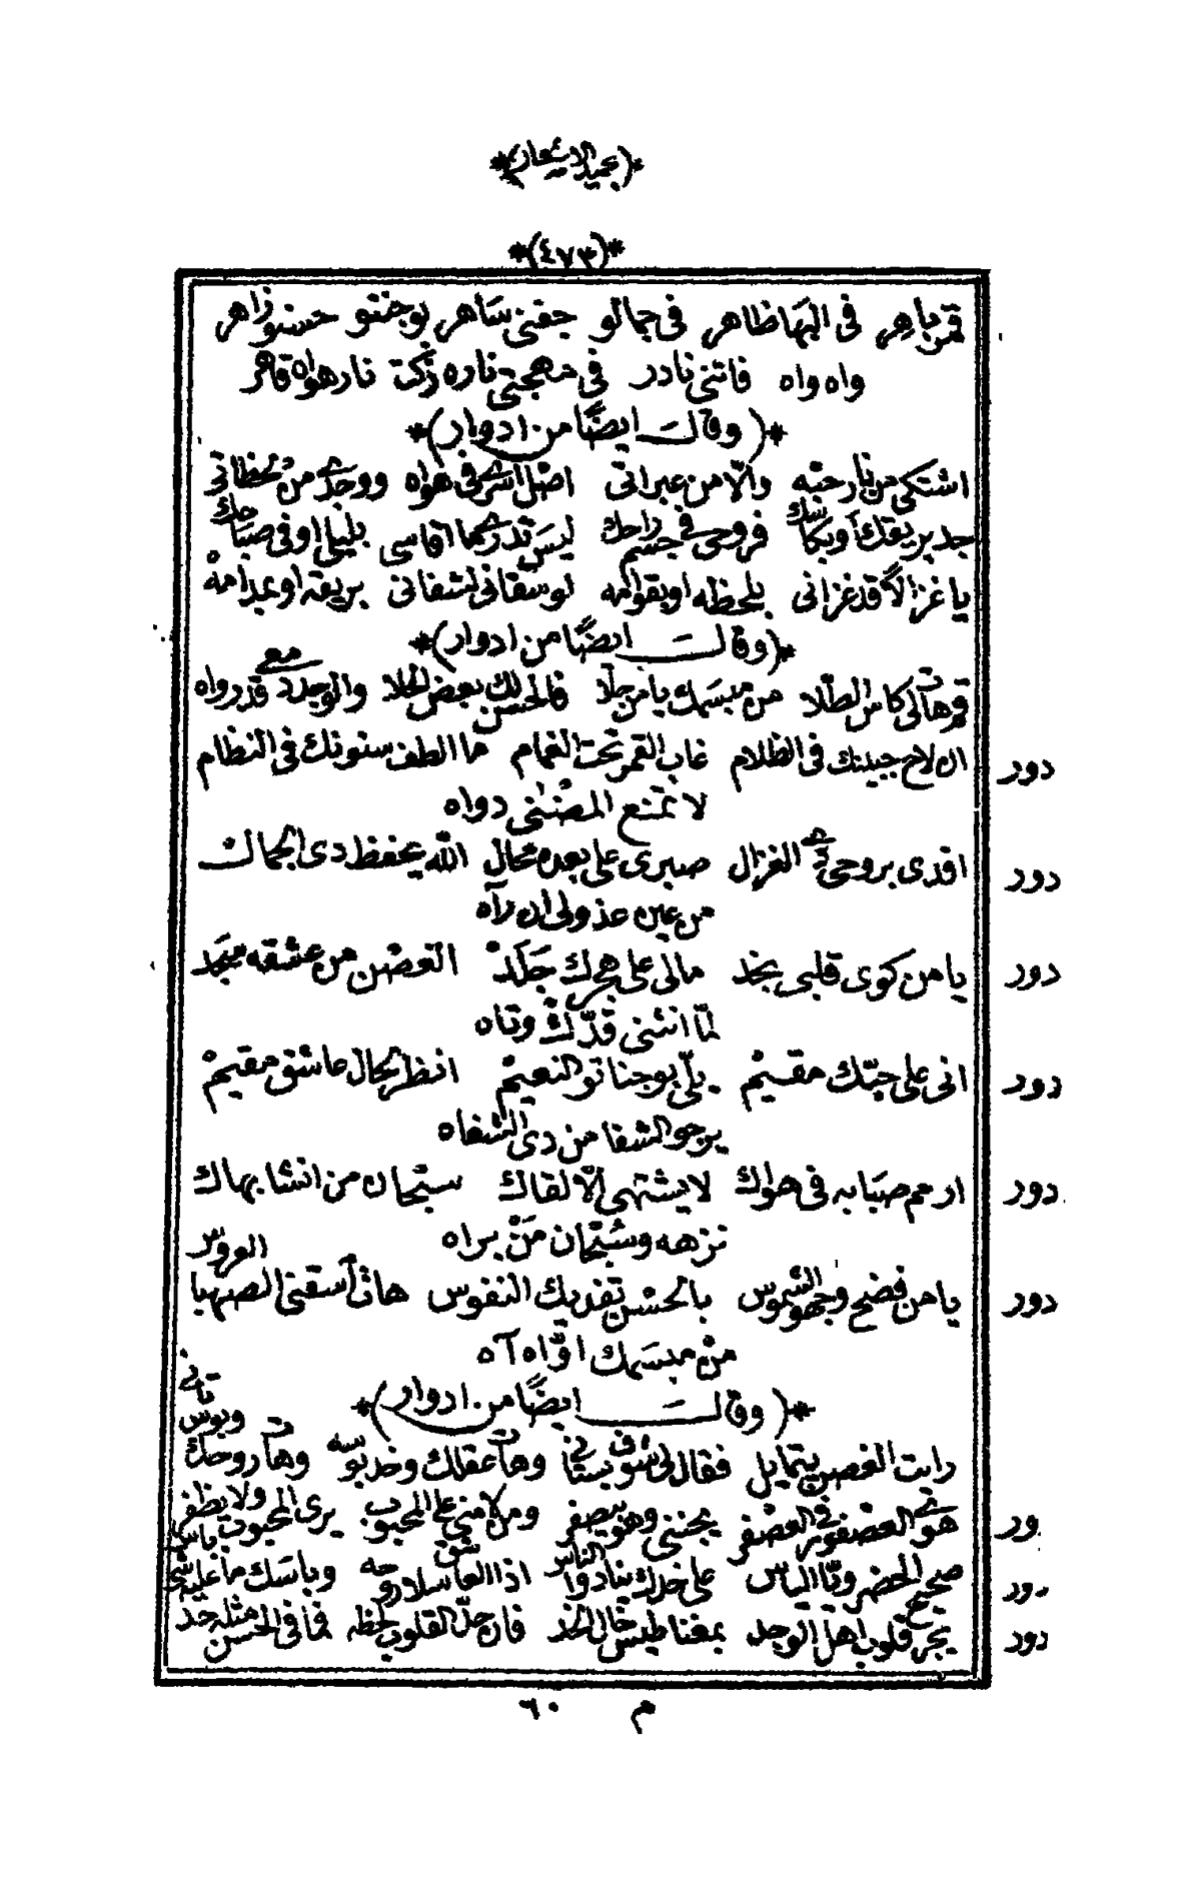 *(٤٧٣)*
قمر باهر فى البها ظاهر فى جمالو جفنى ساهر بوجنتو حسنو زاهر
واه واه فاتنى نادر فى مهجتى ناره ذكت نار هواه قاهر
*(وقال ايضًا من ادوار)*
اشتكى من نار حبّه والّا من عبراتى اصل اسرى فى هواه ووجدى من لحظاتى
جد بريقك أو بكاسك فروحى فى جسم راحك ليس تدرى ما اقاسى بليلى او فى صباحك
يا غزالًا قد غزانى بلحظه او بقوامه لو سقانى لشفانى بريقه او بمدامه
*(وقال ايضًا من ادوار)*
قم هات لى كاس الطلا من مبسمك يا من جلا فالحسن لك بعض الحلا والوجد دمعى قد رواه
دور ان لاح جبينك فى الظلام غاب القمر تحت الغمام ما الطف سنونك فى النظام
لا تمنع المضنى دواه
دور افدى بروحى دى الغزال صبرى على بعده محال الله يحفظ دى الجمال
من عين عذولى ان رآه
دور يا من كوى قلبى بخد مالى على هجرك جلد الغصن من عشقه سجد
لمّا انثنى قدّك وتاه
دور انى على حبّك مقيم يلّى بوجناتو النعيم انظر لحال عاشق مقيم
يرجو الشفا من دى الشفاه
دور ارحم صبابه فى هواك لا يشتهى الّا لقاك سبحان من انشا بهاك
نزهه وسبحان من براه
دور يا من فضح وجهو الشموس بالحسن تفديك النفوس هات أسقنى الصهبا العروس
من مبسمك اوّاه آه
*(وقال ايضًا من ادوار)*
رايت الغصن يتمايل فقال لى شوف بستانى وهات عقلك وخد بوسه وهات روحك وبوس تانى
دور هوى العصفور فى العصفر يجننى وهو بيصفر ومن لامنى على المحبوب يرى المحبوب ولا يظفر
دور صحيح الخضر ويّا الياس على خدك بنادوا الناس اذا العاشق سلا روحه وباسك ما عليه شى باس
دور يجر قلوب اهل الوجد بمغناطيس خال الخد فان حلّ القلوب لحظه فما فى الحسن مثله حد
م ٦٠